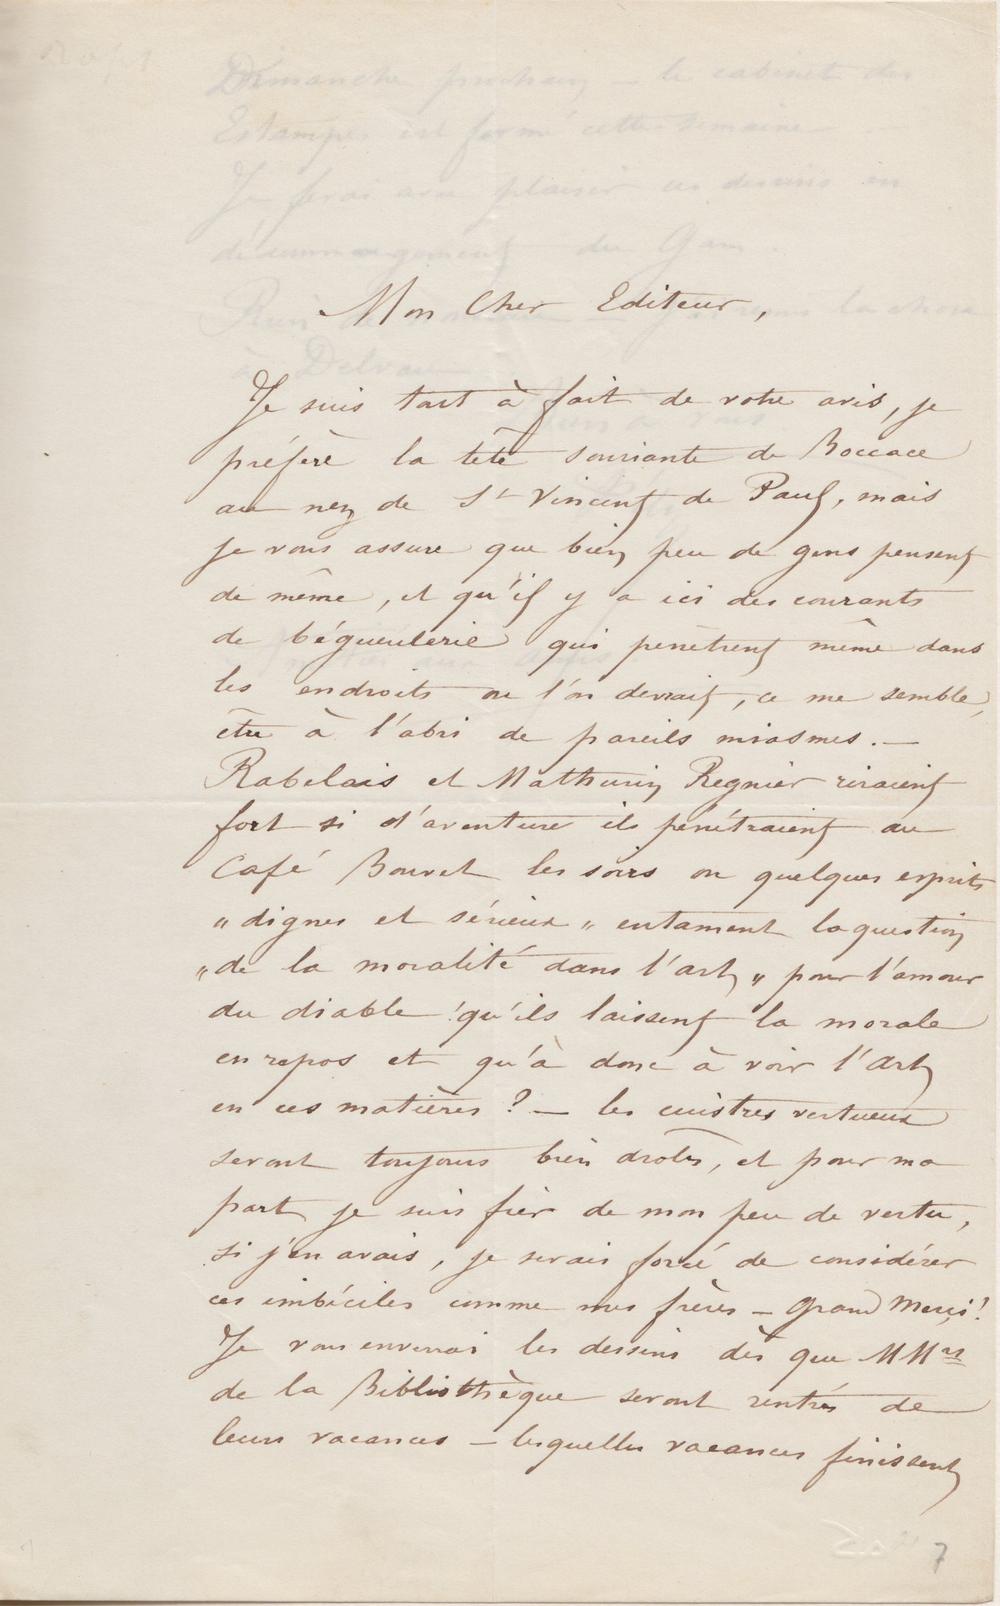 Mon Cher Editeur,
Je suis tout à fait de votre avis, je
préfère la tête souriante de Boccace
au nez de St Vincent de Paul, mais
je vous assure que bien peu de gens pensent
de même, et qu'il y a ici des courants
de bégueulerie qui penètrent même dans
les endroits ou l'on devrait, ce me semble,
être à l'abri de pareils miasmes. —
Rabelais et Mathurin Regnier riraient
fort si d'aventure ils pénétraient au
Café Bouvet les soirs ou quelques esprits
" dignes et sérieux " entament la question
" de la moralité dans l'art " pour l'amour
du diable ! qu'ils laissent la morale
en repos et qu'à donc à voir l'Art
en ces matières ? — les cuistres vertueux
seront toujours bien drôles, et pour ma
part je suis fier de mon peu de vertu,
si j'en avais, je serais forcé de considérer
ces imbéciles comme mes frères — Grand Merci !
Je vous enverrai les dessins dès que MMrs
de la Bibliothèque seront rentrés de
leurs vacances — lesquelles vacances finissent
7
Dimanche prochain — le cabinet des
Estampes est fermé cette semaine —
Je ferai avec plaisir ces dessins en
dédommagement du
la chose
à Delvau